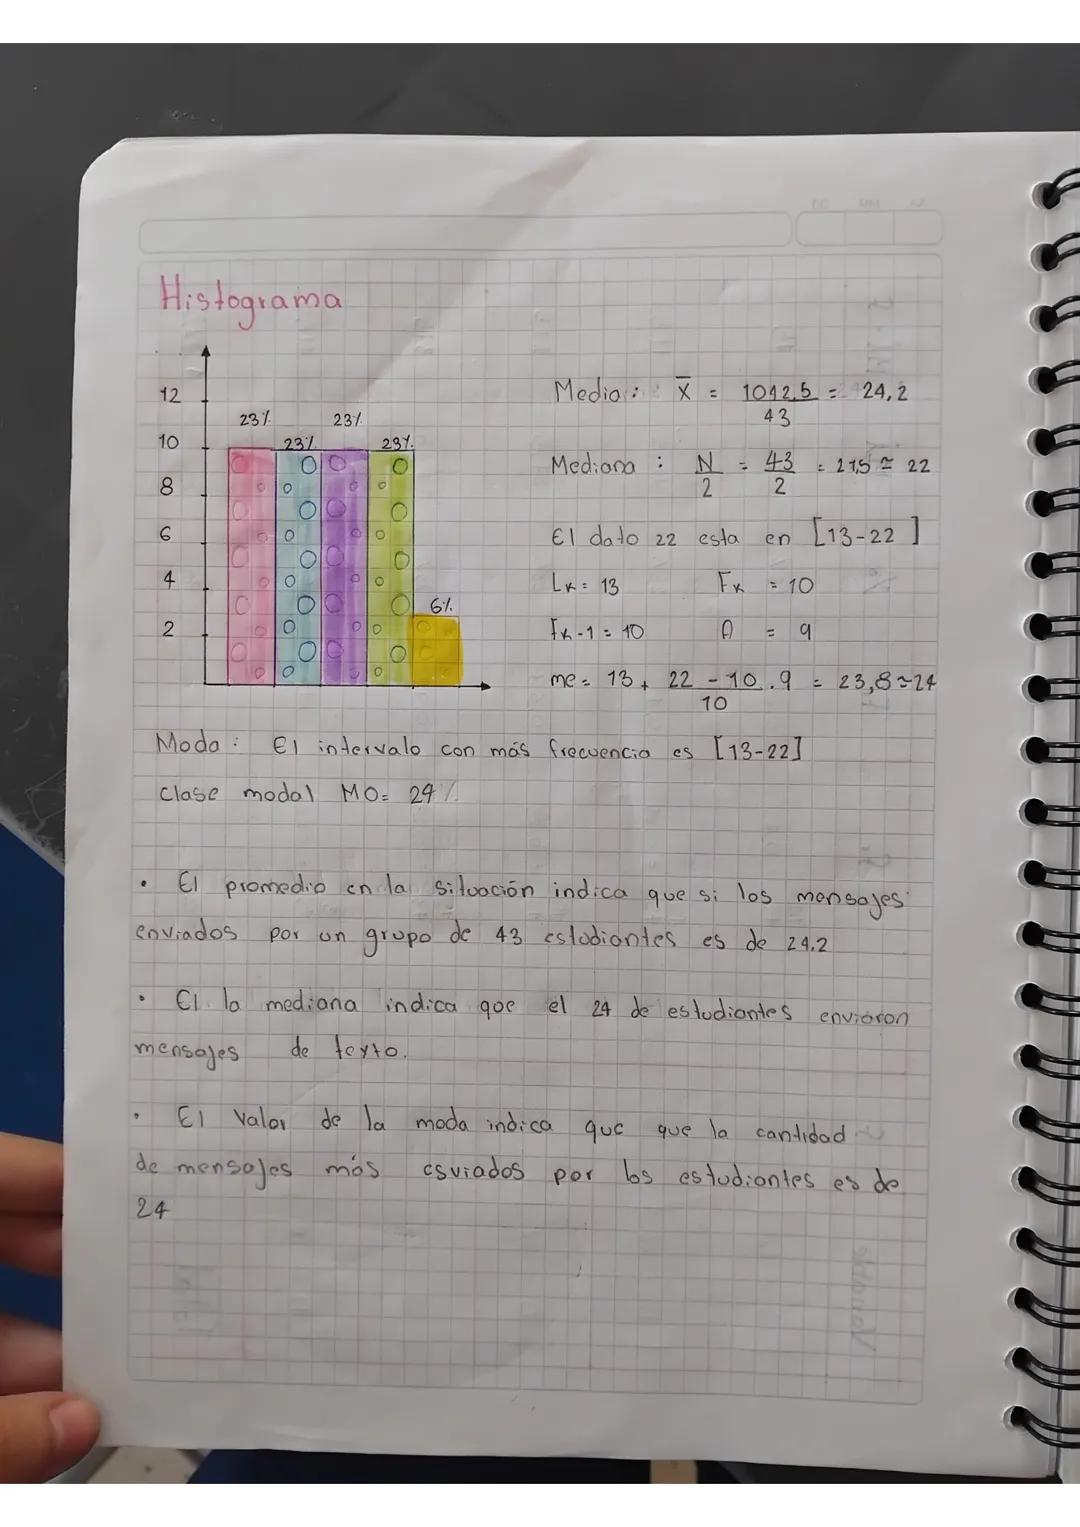 Histograma
12
10
8
6
4
2
23%
23%
23%
23%
6%
Media: x̄ = 1042,5 = 24,2
43
Mediana : N = 43 = 21,5 ≈ 22
2 2
El dato 22 esta en [13-22]
Lk = 13 Fk = 10
Fk-1 = 10 A = 9
me = 13 + 22 - 10 . 9 = 23,8 ≈ 24
10
Moda : El intervalo con más frecuencia es [13-22]
clase modal MO= 24%
• El promedio en la situación indica que si los mensajes
enviados por un grupo de 43 estudiantes es de 24.2
• El la mediana indica que el 24 de estudiantes enviaron
mensajes de texto.
• El Valor de la moda indica que que la cantidad
de mensajes más esviados por los estudiantes es de
24